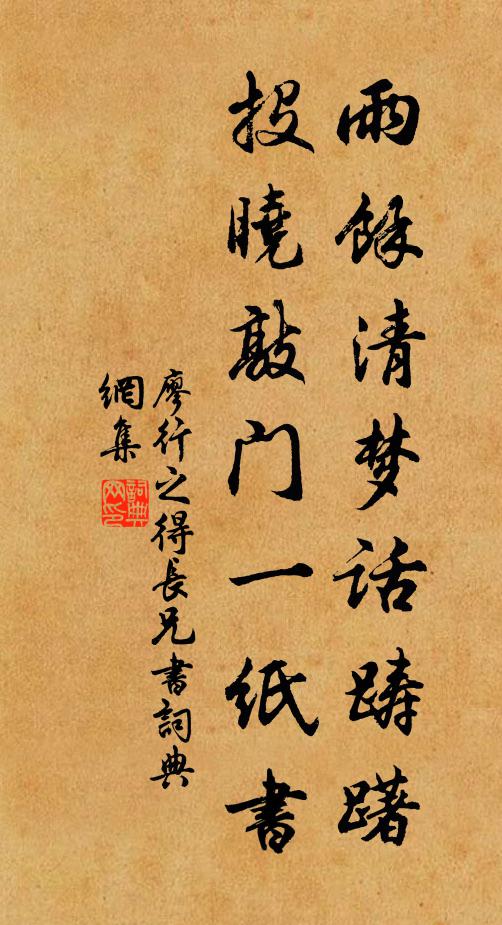 雨餘清梦话踌躇
投曉敲门一纸書
廖行之得長兄書詞典
網集
詞典網印